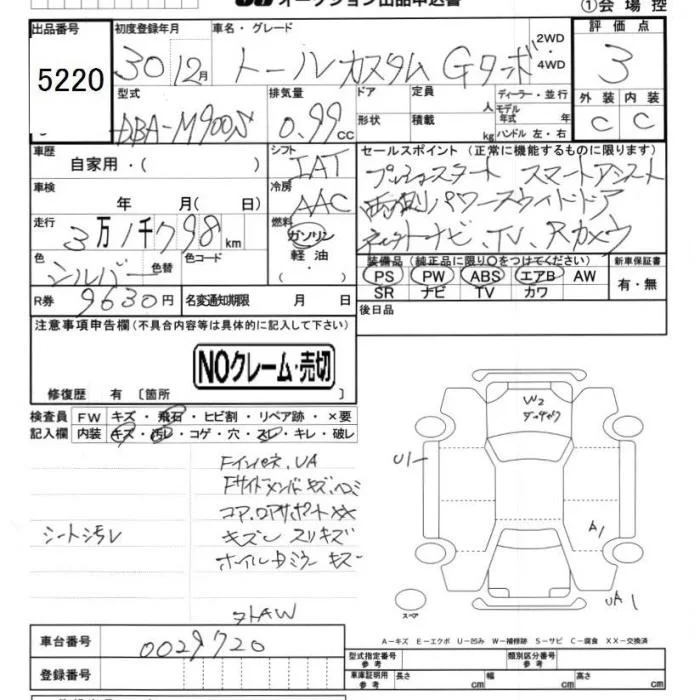 オークション出品申込書
①会場控
出品番号 初度登録年月 車名・グレード 評価点
5220 30 12月 トール カスタム Gターボ 2WD・4WD 3
型式 排気量 ドア 定員 人 ディーラー・並行 外装 内装
DBA-M900S 0.99CC 形状 積載 kg モデル年式 年 ハンドル 左・右 C C
車歴 シフト セールスポイント (正常に機能するものに限ります)
自家用・( ) IAT プッシュスタート スマートアシスト
車検 冷房 両側パワースライドドア
年 月( 日) AAC
走行 燃料 ナビ、TV、Rカメラ
3万1千798km ガソリン
色 色替 色コード 軽油 装備品 (純正品に限り〇をつけてください) 新車保証書
シルバー ・( ) PS PW ABS エアB AW 有・無
SR ナビ TV カワ
R券 9630円 名変通知期限 月 日 後日品
注意事項申告欄 (不具合内容等は具体的に記入して下さい)
NOクレーム・売切
修復歴 有 〔箇所 〕
検査員 FW キズ・飛石・ヒビ割・リペア跡・×要
記入欄 内装 キズ・汚レ・コゲ・穴・スレ・キレ・破レ
W2
U1
A1
UA1
Fインパネ、UA
コア、ロアサポートXX
シート汚レ
キズ スリキズ
スペア
A−キズ E−エクボ U−凹み W−補修跡 S−サビ C−腐食 XX−交換済
車台番号 0029720
型式指定番号 参考 類別区分番号 参考
登録番号 車庫証明用 参考 長さ cm 幅 cm 高さ cm